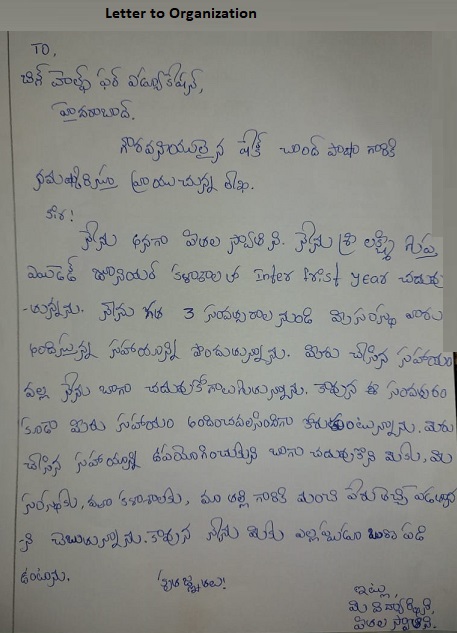 Letter to Organization
TO,
బిగ్ హెల్ప్ ఫర్ ఎడ్యుకేషన్,
హైదరాబాద్.
గౌరవనీయులైన షేక్ చాంద్ పాషా గారికి
నమస్కరిస్తూ వ్రాయుచున్న లేఖ.
నేను అనగా పితల స్వాతి ని. నేను శ్రీ లక్ష్మి గుప్త
ఎయిడెడ్ జూనియర్ కళాశాల లో Inter First year చదువు
-తున్నను. నేను గత 3 సంవత్సరాల నుండి మీ సంస్థ వారు
అందిస్తున్న సహాయాన్ని పొందుతున్నాను. మీరు చేసిన సహాయం
వల్ల నేను బాగా చదువుకోగలుగుతున్నాను. కావున ఈ సంవత్సరం
కూడా మీరు సహాయం అందించవలసిందిగా కోరుకుంటున్నాను. మీరు
చేసిన సహాయాన్ని ఉపయోగించుకుని బాగా చదువుకొని మీకు, మీ
సంస్థకు, మా కళాశాలకు, మా తల్లి గారికి మంచి పేరు తెచ్చి పెడతాన
-ని చెబుతున్నాను. కావున నేను మీకు ఎల్లప్పుడూ ఋణ పడి
ఉంటును.
కృతజ్ఞతలు!
ఇట్లు,
మీ విద్యార్థిని,
పితల స్వాతి.